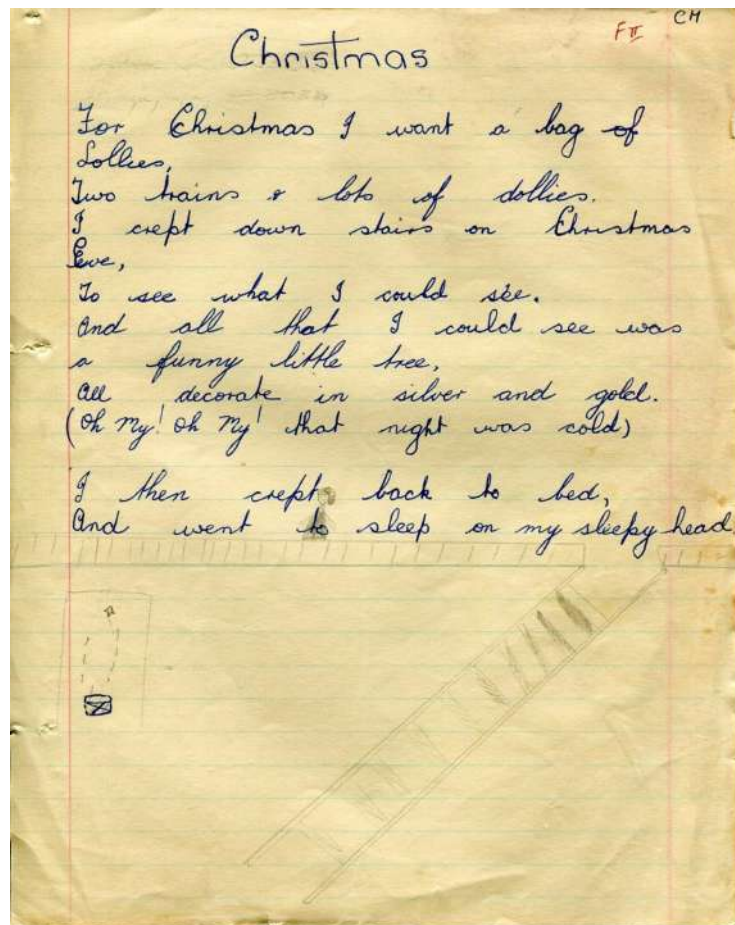 CM
FII
Christmas
For Christmas I want a bag of
Lollies,
Two trains & lots of dollies.
I crept down stairs on Christmas
Eve,
To see what I could see.
And all that I could see was
a funny little tree,
All decorate in silver and gold.
(Oh My! Oh My! that night was cold)
I then crept back to bed,
And went to sleep on my sleepy head.